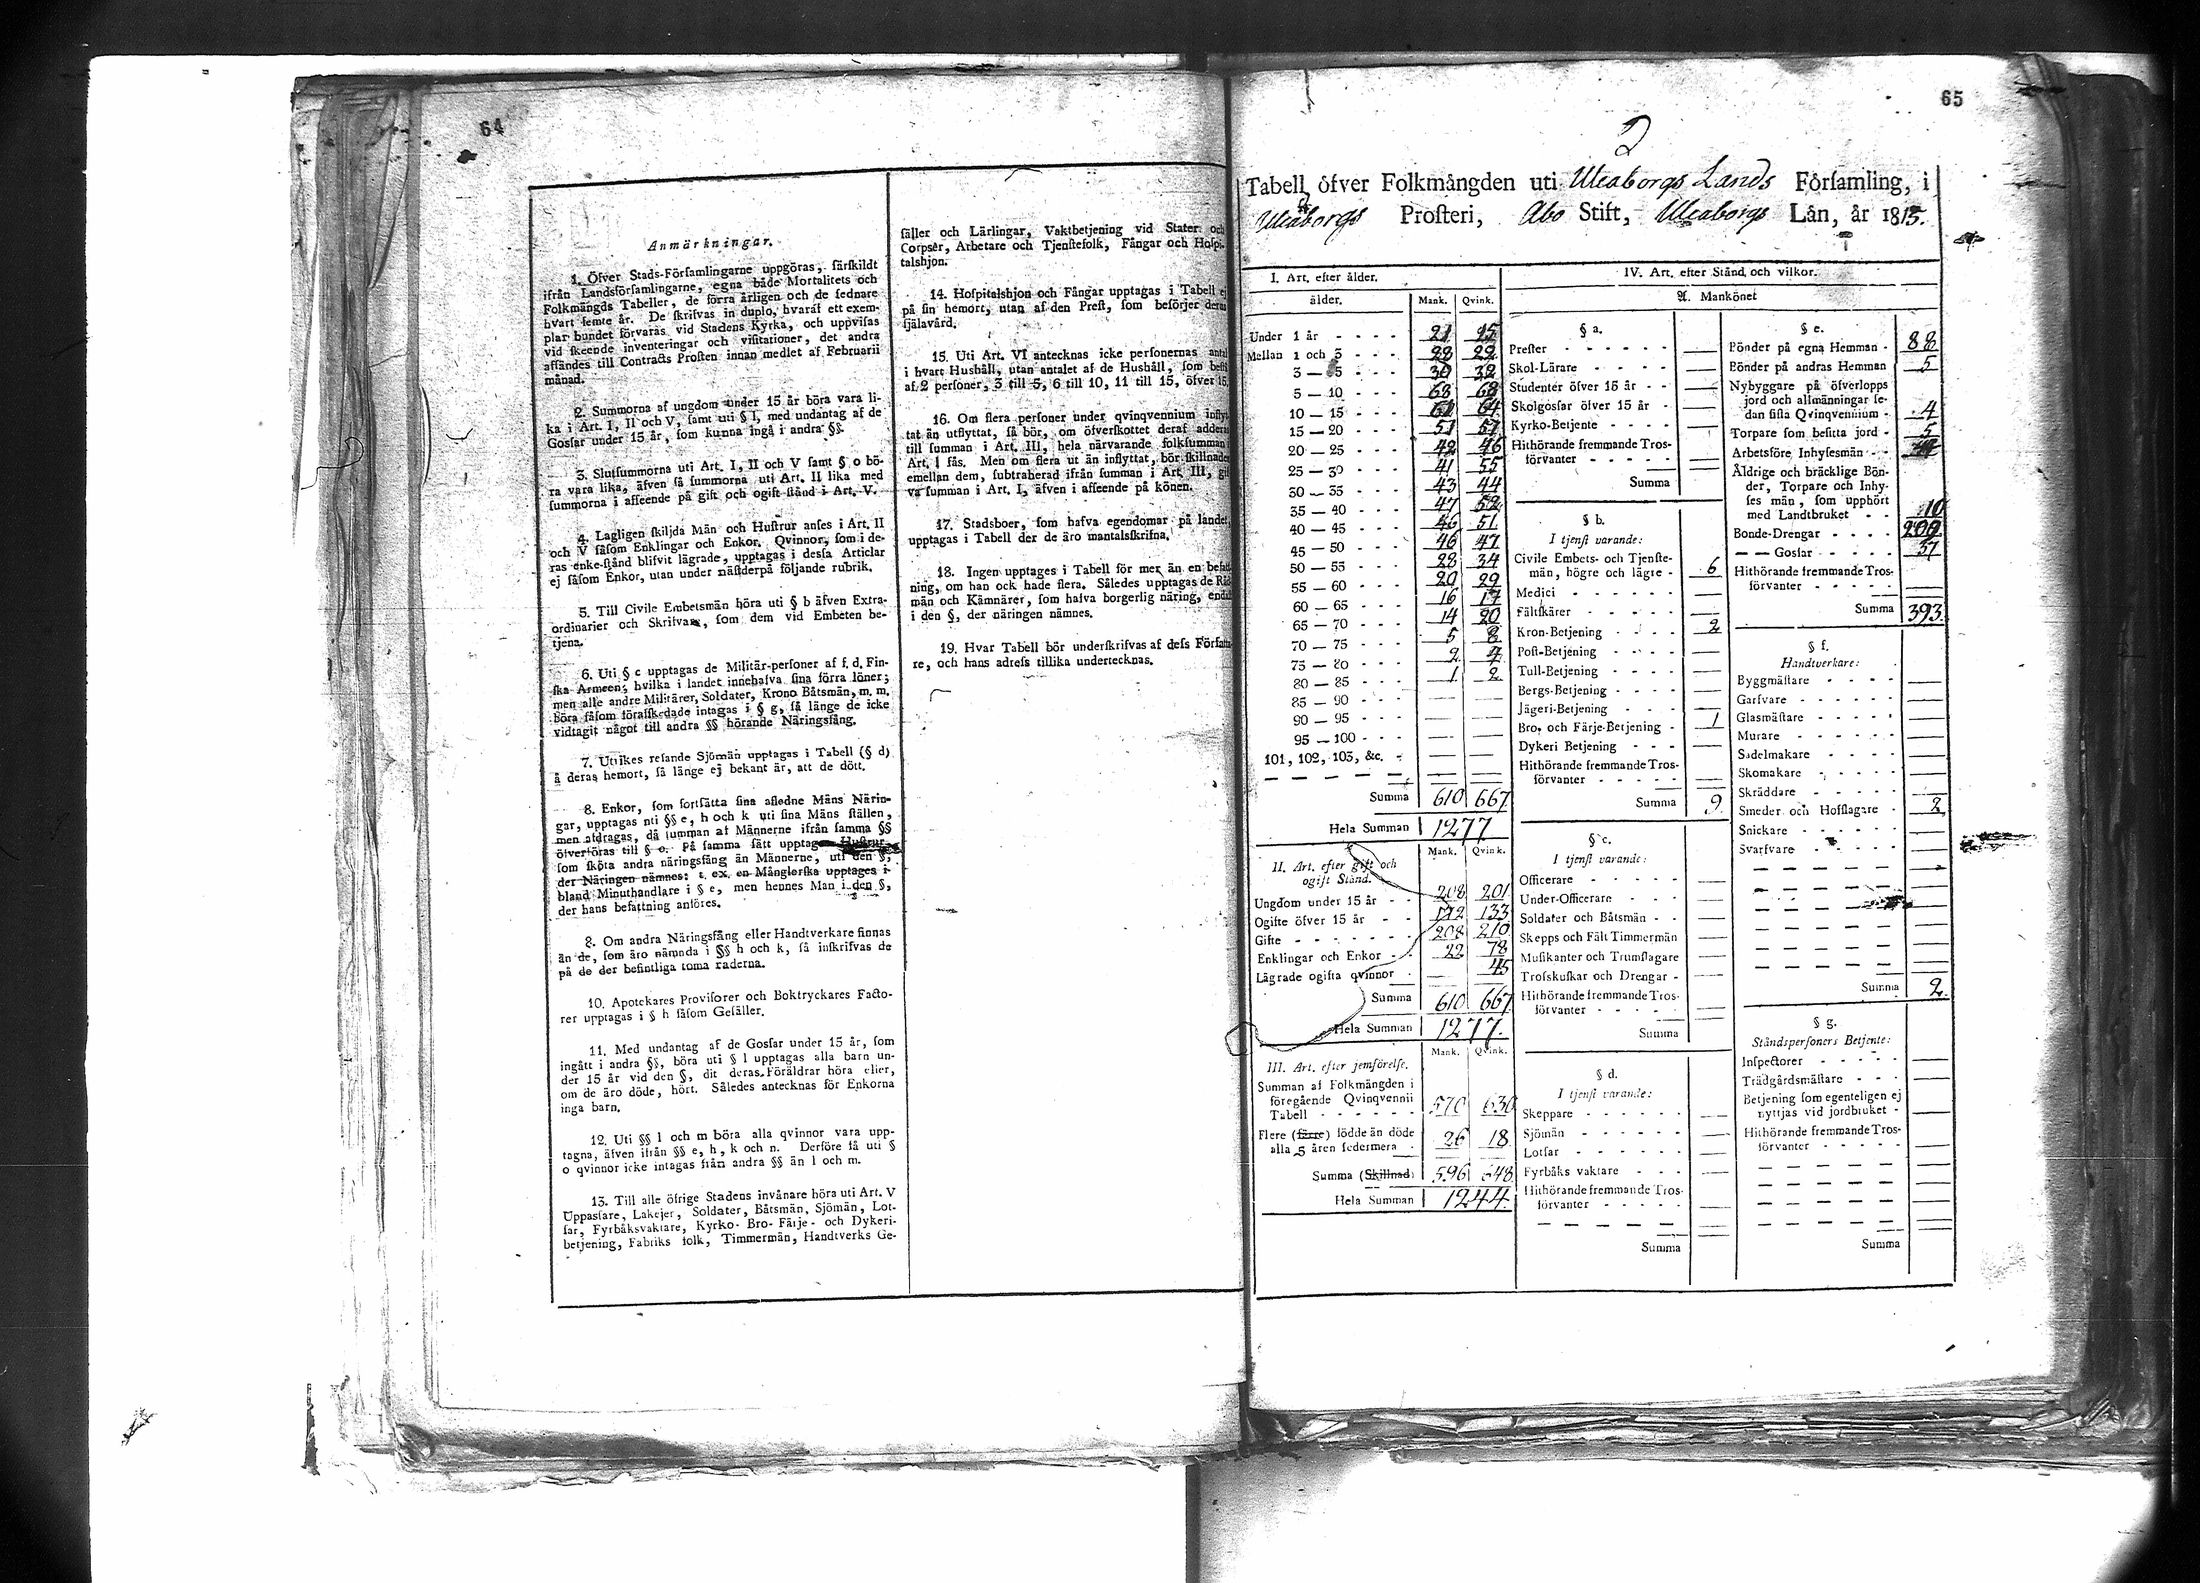 64
Anmärkningar.
1. Öfver Stads-Förſamlingarne uppgöras, ſärſkildt
ifrån Landsförſamlingarne, egna både Mortalitets och
Folkmängds Tabeller, de förra årligen och de ſednare
hvart femte år. De ſkrifvas in duplo, hvaraf ett exem-
plar bundet förvaras vid Stadens Kyrka, och uppviſas
vid ſkeende inventeringar och viſitationer, det andra
afſändes till Contracts Proſten innan medlet af Februarii
månad.
2. Summorna af ungdom under 15 år böra vara li-
ka i Art. I, II och V, ſamt uti § l, med undantag af de
Goſſar under 15 år, ſom kunna ingå i andra §§.
3. Slutſummorna uti Art. I, II och V ſamt § o bö-
ra vara lika, äfven ſå ſummorna uti Art. II lika med
ſummorna i afſeende på gift och ogift ſtånd i Art. V.
4. Lagligen ſkiljda Män och Huſtrur anſes i Art. II
och V ſåſom Enklingar och Enkor. Qvinnor, ſom i de-
ras enke-ſtånd blifvit lägrade, upptagas i deſſa Articlar
ej ſåſom Enkor, utan under näſtderpå följande rubrik.
5. Till Civile Embetsmän höra uti § b äfven Extra-
ordinarier och Skrifvare, ſom dem vid Embeten be-
tjena.
6. Uti § c upptagas de Militär-perſoner af f. d. Fin-
ſka Armeen, hvilka i landet innehafva ſina förra löner;
men alle andre Militärer, Soldater, Krono Båtsmän, m. m.
böra ſåſom förafſkedade intagas i § g, ſå länge de icke
vidtagit något till andra §§ hörande Näringsfång.
7. Utrikes reſande Sjömän upptagas i Tabell (§ d)
å deras hemort, ſå länge ej bekant är, att de dött.
8. Enkor, ſom fortſätta ſina afledne Mäns Närin-
gar, upptagas uti §§ e, h och k uti ſina Mäns ſtällen,
men afdragas, då ſumman af Männerne ifrån ſamma §§
öfverföras till § o. På ſamma ſätt upptagas Huſtrur,
ſom ſköta andra näringsfång än Männerne, uti den §,
der Näringen nämnes: t. ex. en Månglerſka upptages i
bland Minuthandlare i § e, men hennes Man i den §,
der hans befattning anföres.
9. Om andra Näringsfång eller Handtverkare finnas
än de, ſom äro nämnda i §§ h och k, ſå inſkrifvas de
på de der befintliga toma raderna.
10. Apotekares Proviſorer och Boktryckares Facto-
rer upptagas i § h ſåſom Geſäller.
11. Med undantag af de Goſſar under 15 år, ſom
ingått i andra §§, böra uti § l upptagas alla barn un-
der 15 år vid den §, dit deras Föräldrar höra eller,
om de äro döde, hört. Således antecknas för Enkorna
inga barn.
12. Uti §§ l och m böra alla qvinnor vara upp-
tagna, äfven ifrån §§ e, h, k och n. Derföre få uti §
o qvinnor icke intagas från andra §§ än l och m.
13. Till alle öfrige Stadens invånare höra uti Art. V
Uppaſſare, Lakejer, Soldater, Båtsmän, Sjömän, Lot-
ſar, Fyrbåksvaktare, Kyrko- Bro- Färje- och Dykeri-
betjening, Fabriks folk, Timmermän, Handtverks Ge-
ſäller och Lärlingar, Vaktbetjening vid Stater och
Corpser, Arbetare och Tjenſtefolk, Fångar och Hoſpi-
talshjon.
14. Hoſpitalshjon och Fångar upptagas i Tabell ej
på ſin hemort, utan af den Preſt, ſom beſörjer deras
ſjälavård.
15. Uti Art. VI antecknas icke perſonernas antal
i hvart Hushåll, utan antalet af de Hushåll, ſom beſtå
af 2 perſoner, 3 till 5, 6 till 10, 11 till 15, öfver 15.
16. Om flera perſoner under qvinqvennium inflyt-
tat än utflyttat, ſå bör, om öfverſkottet deraf adderas
till ſumman i Art. III, hela närvarande folkſumman i
Art. I fås. Men om flera ut än inflyttat, bör ſkillnaden
emellan dem, ſubtraherad ifrån ſumman i Art. III, gif-
va ſumman i Art. I, äfven i afſeende på könen.
17. Stadsboer, ſom hafva egendomar på landet,
upptagas i Tabell der de äro mantalsſkrifna.
18. Ingen upptages i Tabell för mer än en befatt-
ning, om han ock hade flera. Således upptagas de Råd-
män och Kämnärer, ſom hafva borgerlig näring, endaſt
i den §, der näringen nämnes.
19. Hvar Tabell bör underſkrifvas af deſs Författa-
re, och hans adreſs tillika undertecknas.
65
2
Tabell öfver Folkmängden uti Uleaborgs Lands Förſamling, i
Uleåborgs Proſteri, Abo Stift, Uleaborgs Län, år 1815.
I. Art. efter ålder.
ålder. Mank. Qvink.
Under 1 år - - - - 21 25
Mellan 1 och 3 - - - 28 22
3 — 5 - - - 30 32
5 — 10 - - - 68 68
10 — 15 - - - 61 64
15 — 20 - - - 51 51
20 — 25 - - - 42 46
25 — 30 - - - 41 55
30 — 35 - - - 43 44
35 — 40 - - - 47 52
40 — 45 - - - 46 51
45 — 50 - - - 46 47
50 — 55 - - - 28 34
55 — 60 - - - 20 29
60 — 65 - - - 16 17
65 — 70 - - - 14 20
70 — 75 - - - 5 8
75 — 80 - - - 2 4
80 — 85 - - - 1 2
85 — 90 - - -
90 — 95 - - -
95 — 100 - - -
101, 102, 103, &c. -
Summa 610 667
Hela Summan 1277
II. Art. efter gift och
ogift Stånd.
Mank. Qvink.
Ungdom under 15 år - - 208 201
Ogifte öfver 15 år - - 172 133
Gifte - - - - - - 208 210
Enklingar och Enkor - - 22 78
Lägrade ogifta qvinnor - 45
Summa 610 667
Hela Summan 1277.
Mank. Qvink.
III. Art. efter jemförelſe.
Summan af Folkmängden i
föregående Qvinqvennii
Tabell - - - - - - 570 630
Flere (färre) födde än döde
alla 5 åren ſedermera - 26 18
Summa (Skillnad) 596 648
Hela Summan 1244.
IV. Art. efter Stånd och vilkor.
A. Mankönet
§ a.
Preſter - - - - -
Skol-Lärare - - - -
Studenter öfver 15 år - -
Skolgoſſar öfver 15 år -
Kyrko-Betjente - - -
Hithörande fremmande Tros-
förvanter - - - - -
Summa
§ b.
I tjenſt varande:
Civile Embets- och Tjenſte-
män, högre och lägre - 6
Medici - - - - - -
Fältſkärer - - - - -
Kron-Betjening - - - - 2
Poſt-Betjening - - - -
Tull-Betjening - - - -
Bergs-Betjening - - - -
Jägeri-Betjening - - -
Bro- och Färje-Betjening - 1
Dykeri Betjening - - -
Hithörande fremmande Tros-
förvanter - - - - -
Summa 9.
§ c.
I tjenſt varande:
Officerare - - - - -
Under-Officerare - - -
Soldater och Båtsmän - -
Skepps och Fält Timmermän
Muſikanter och Trumſlagare
Troſskuſkar och Drengar -
Hithörande fremmande Tros-
förvanter - - - - -
Summa
§ d.
I tjenſt varande:
Skeppare - - - - - -
Sjömän - - - - - -
Lotſar - - - - - -
Fyrbåks vaktare - - -
Hithörande fremmande Tros-
förvanter - - - - -
Summa
§ e.
Bönder på egna Hemman - 88
Bönder på andras Hemman 5
Nybyggare på öfverlopps
jord och allmänningar ſe-
dan ſiſta Qvinqvennium - 4
Torpare ſom beſitta jord - 5
Arbetsföre Inhyſesmän - -
Åldrige och bräcklige Bön-
der, Torpare och Inhy-
ſes män, ſom upphört
med Landtbruket - - 10
Bonde-Drengar - - - -
— — Goſſar - - - - 37
Hithörande fremmande Tros-
förvanter - - - - -
Summa 393.
§ f.
Handtverkare:
Byggmäſtare - - - -
Garfvare - - - - -
Glasmäſtare - - - - -
Murare - - - - - -
Sadelmakare - - - -
Skomakare - - - - -
Skräddare - - - - -
Smeder och Hofſlagare - 2
Snickare - - - - -
Svarfvare - - - - -
Summa 2.
§ g.
Ståndsperſoners Betjente:
Inſpectorer - - - -
Trädgårdsmäſtare - - -
Betjening ſom egenteligen ej
nyttjas vid jordbruket -
Hithörande fremmande Tros-
förvanter - - - - -
Summa